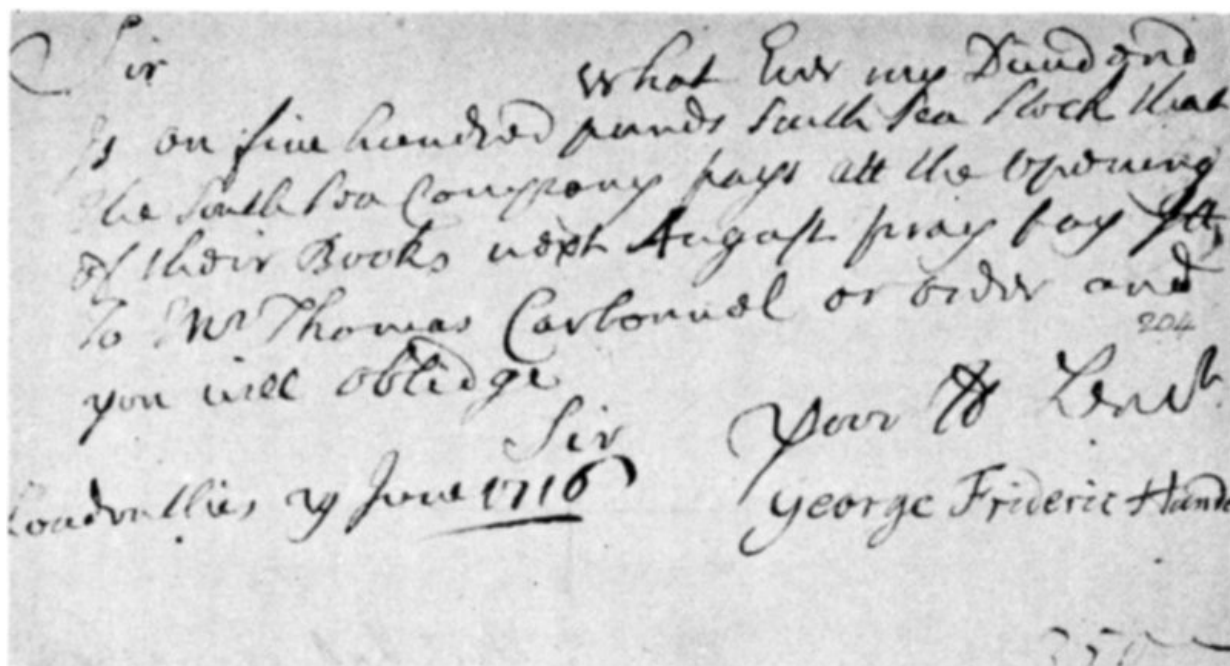 Sir
What Ever my Dividend
Is on five hundred pounds South Sea Stock that
the South Sea Company pays att the opening
of their Books next August pray pay itt
To Mr Thomas Carbonnel or order and
204
you will oblidge
Sir
Your
London this 29 June 1716
George Frideric Hande